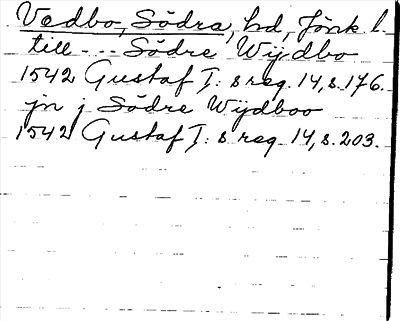 Vedbo, Södra, hd, Jönk l.
till --- Södre Wijdbo
1542 Gustaf I: s reg. 14, s. 176.
jn j Södre Wijdboo
1542 Gustaf I: s reg. 14, s. 203.